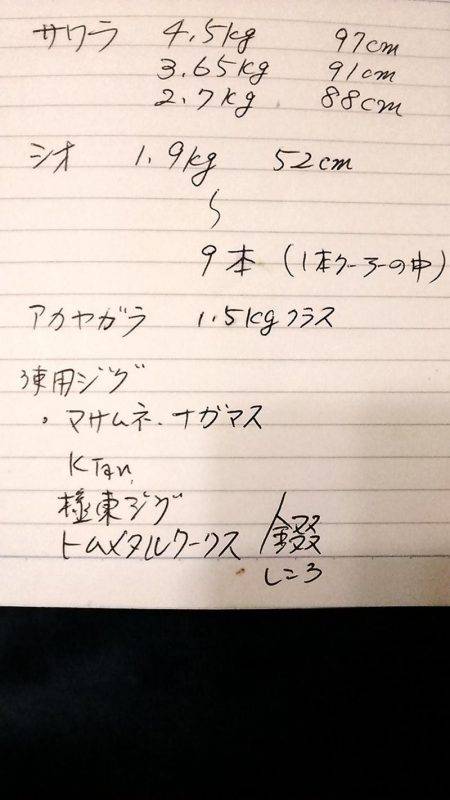 サワラ 4.5kg 97cm
3.65kg 91cm
2.7kg 88cm
シオ 1.9kg 52cm
〜
9本 (1本クーラーの中)
アカヤガラ 1.5kgクラス
使用ジグ
・マサムネ・ナガマス
KTan
極東ジグ
トムメタルワークス / 錣
しころ